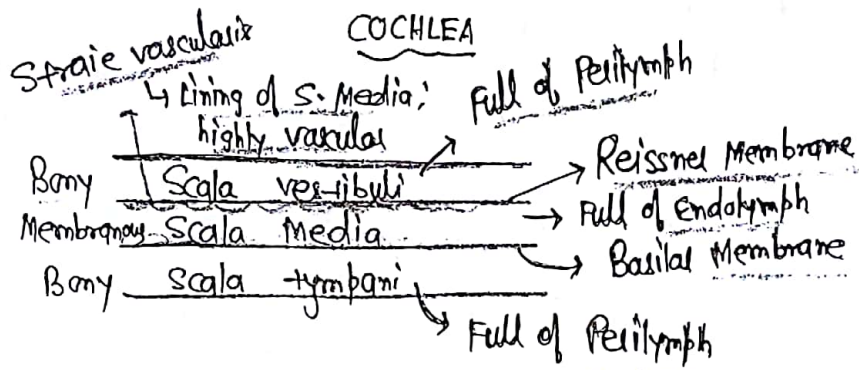 COCHLEA
Straie vascularis
↳ Lining of S. Media;
highly vascular
Full of Perilymph
Bony Scala vestibuli
Reissner Membrane
Membranous Scala Media
Full of Endolymph
Basilar Membrane
Bony Scala tympani
Full of Perilymph